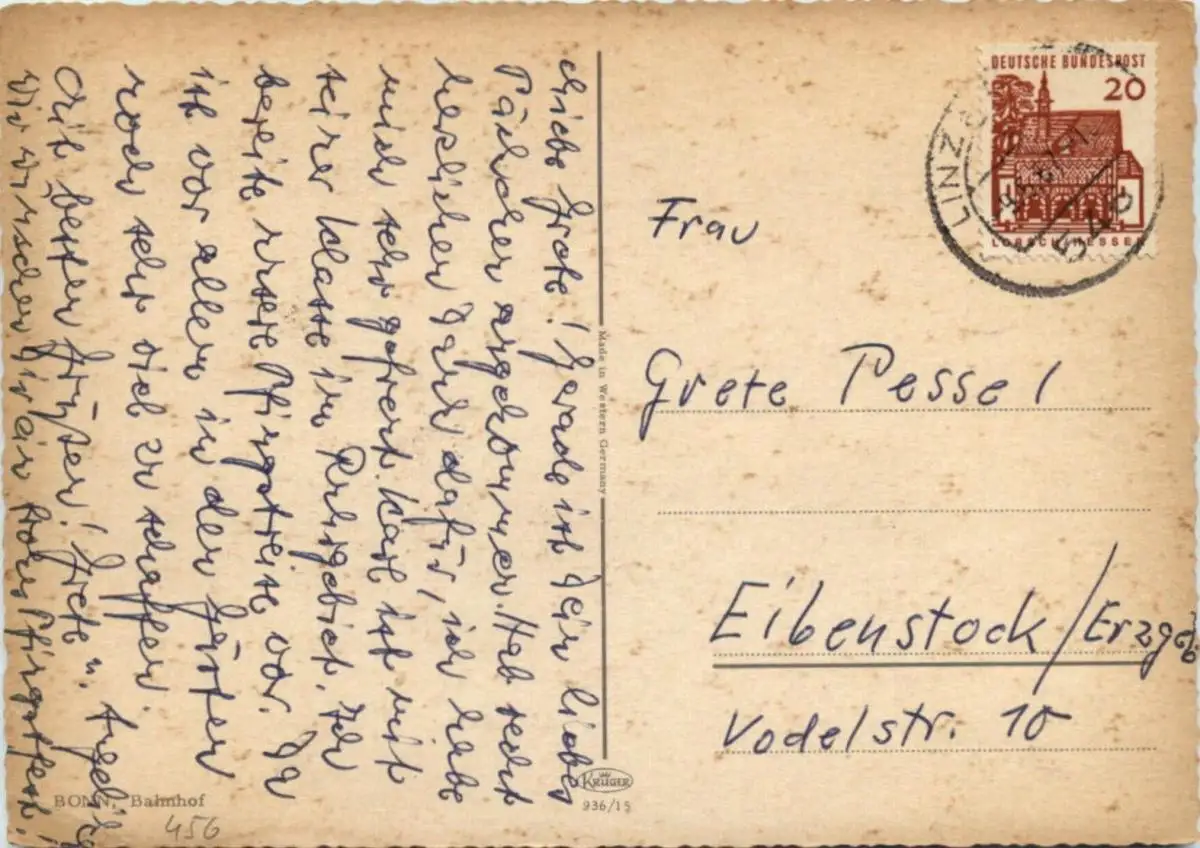 Liebe Grete! Gerade ist Dein liebes
Päckchen angekommen. Hab recht
herzlichen Dank dafür, ich habe
mich sehr gefreut. Karl ist mit
seiner Klasse im Ruhrgebiet. Ich
bereite unsere Pfingstreise vor. Da
ist vor allem in den Gärten
noch sehr viel zu schaffen.
Mit besten Grüßen! Grete u.
Wir wünschen Dir ein Pfingstfest!
BONN, Bahnhof
456
Made in Western Germany
KRÜGER
936/15
DEUTSCHE BUNDESPOST
20
LORSCH/HESSEN
LINZ
Frau
Grete Pessel
Eibenstock/Erzgeb
Vodelstr. 10